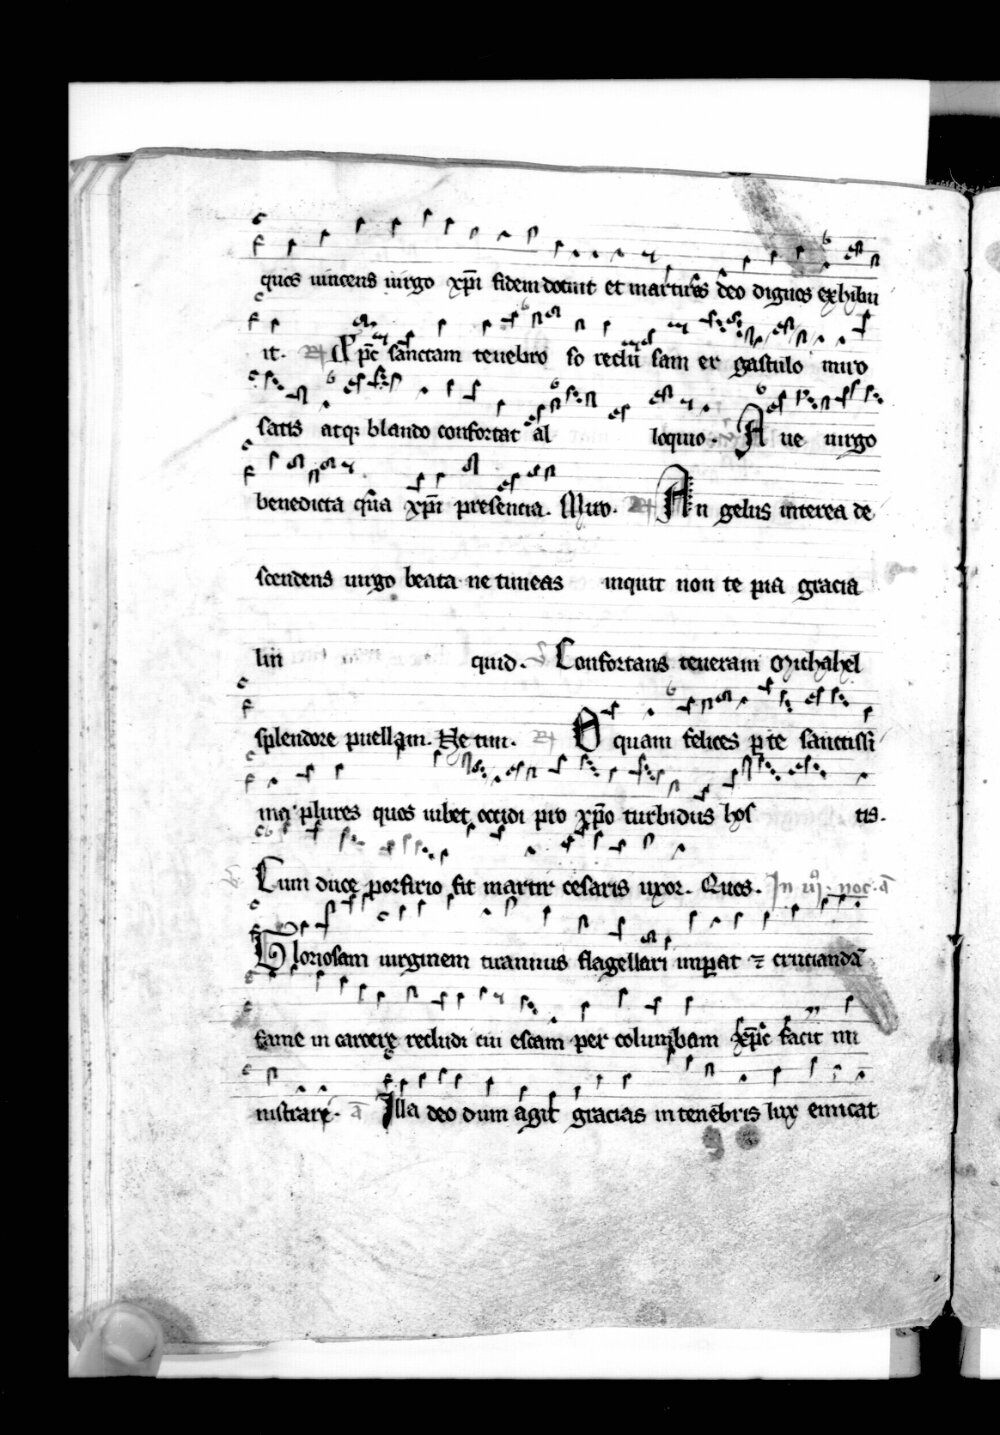 quos uincens uirgo xp̄i fidem docuit et martires deo dignos exhibu
it. R Xp̄c sanctam tenebro so reclu sam er gastulo miro
satis atq; blando confortat al loquio. V A ue uirgo
benedicta q̄ia xp̄i presencia. Miro. R An gelus interea de
scendens uirgo beata ne timeas inquit non te pia gracia
lin quid. V Confortans teneram Michahel
splendore puellam. Ne tim. R O quam felices p te sanctissi
ma plures quos iubet occidi pro xp̄o turbidus hos tis.
V Cum duce porfirio fit martir cesaris uxor. Quos. In iij. noc. a
Gloriosam uirginem tirannus flagellari imperat ⁊ cruciandā
fame in carcere recludi cui escam per columbam xp̄c facit mi
nistrare. a Illa deo dum agit gracias in tenebris lux emicat